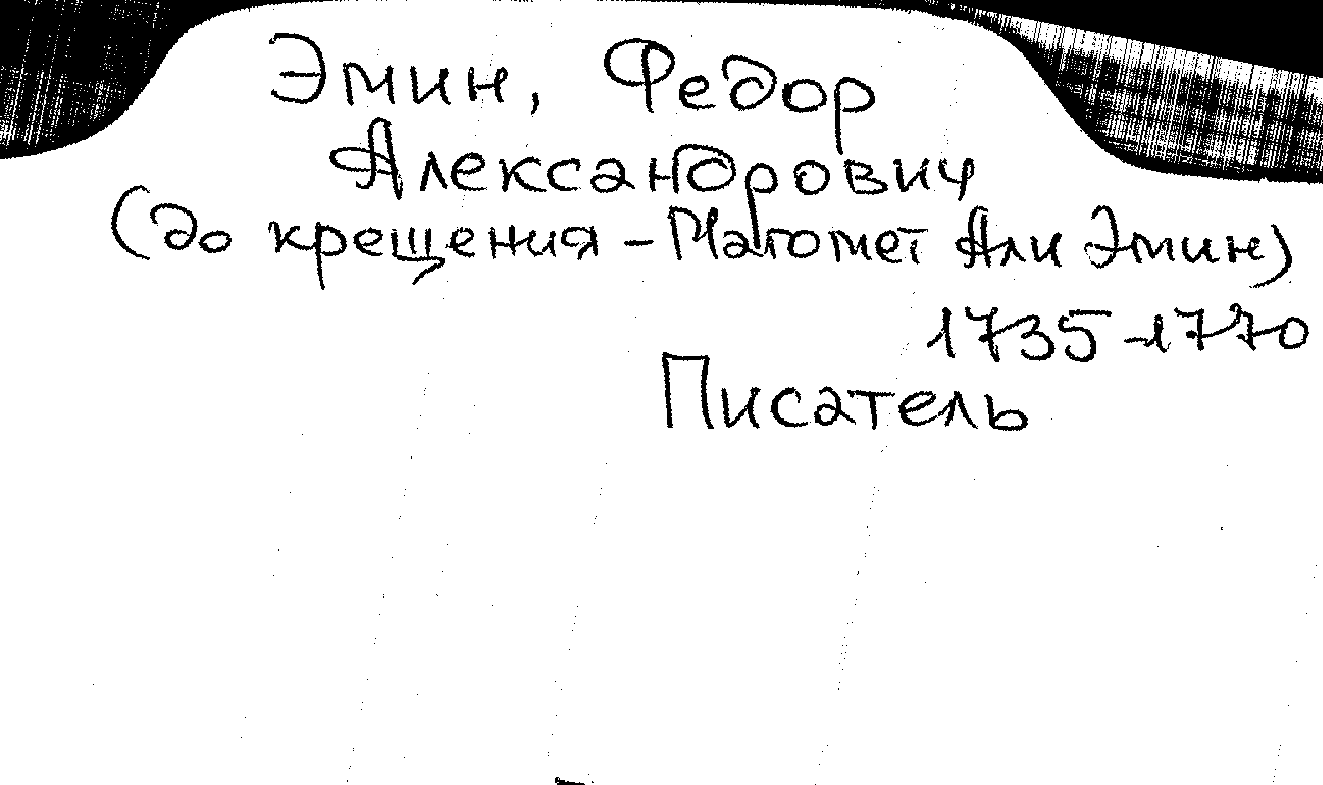 Эмин, Федор
Александрович
(до крещения - Магомет Али Эмин)
1735-1770
Писатель